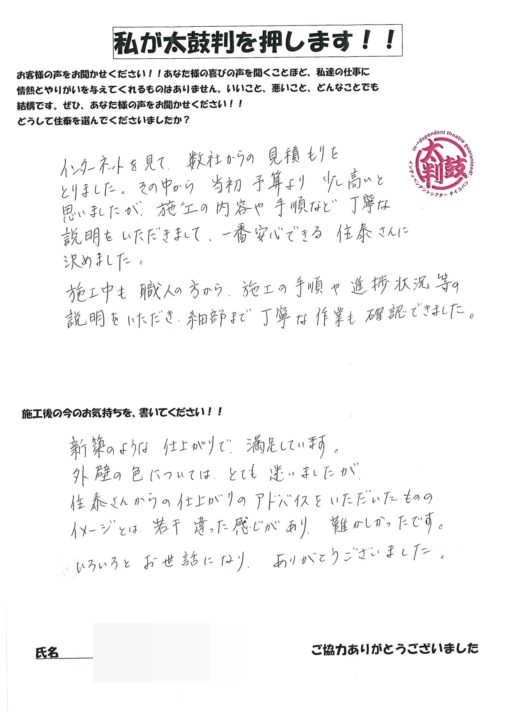 私が太鼓判を押します！！
お客様の声をお聞かせください！！あなた様の喜びの声を聞くことほど、私達の仕事に
情熱とやりがいを与えてくれるものはありません。いいこと、悪いこと、どんなことでも
結構です。ぜひ、あなた様の声をお聞かせください！！
どうして住泰を選んでくださいましたか？
インターネットを見て、数社からの見積もりを
とりました。その中から当初予算より少し高いと
思いましたが、施工の内容や手順など丁寧な
説明をいただきまして、一番安心できる住泰さんに
決めました。
施工中も職人の方から、施工の手順や進捗状況等の
説明をいただき、細部まで丁寧な作業も確認できました。
太鼓判
インディペンデントシアター
施工後の今のお気持ちを、書いてください！！
新築のような仕上がりで、満足しています。
外壁の色については、とても迷いましたが、
住泰さんからの仕上がりのアドバイスをいただいたものの
イメージとは、若干違った感じがあり、難かしかったです。
いろいろとお世話になり、ありがとうございました。
氏名
ご協力ありがとうございました